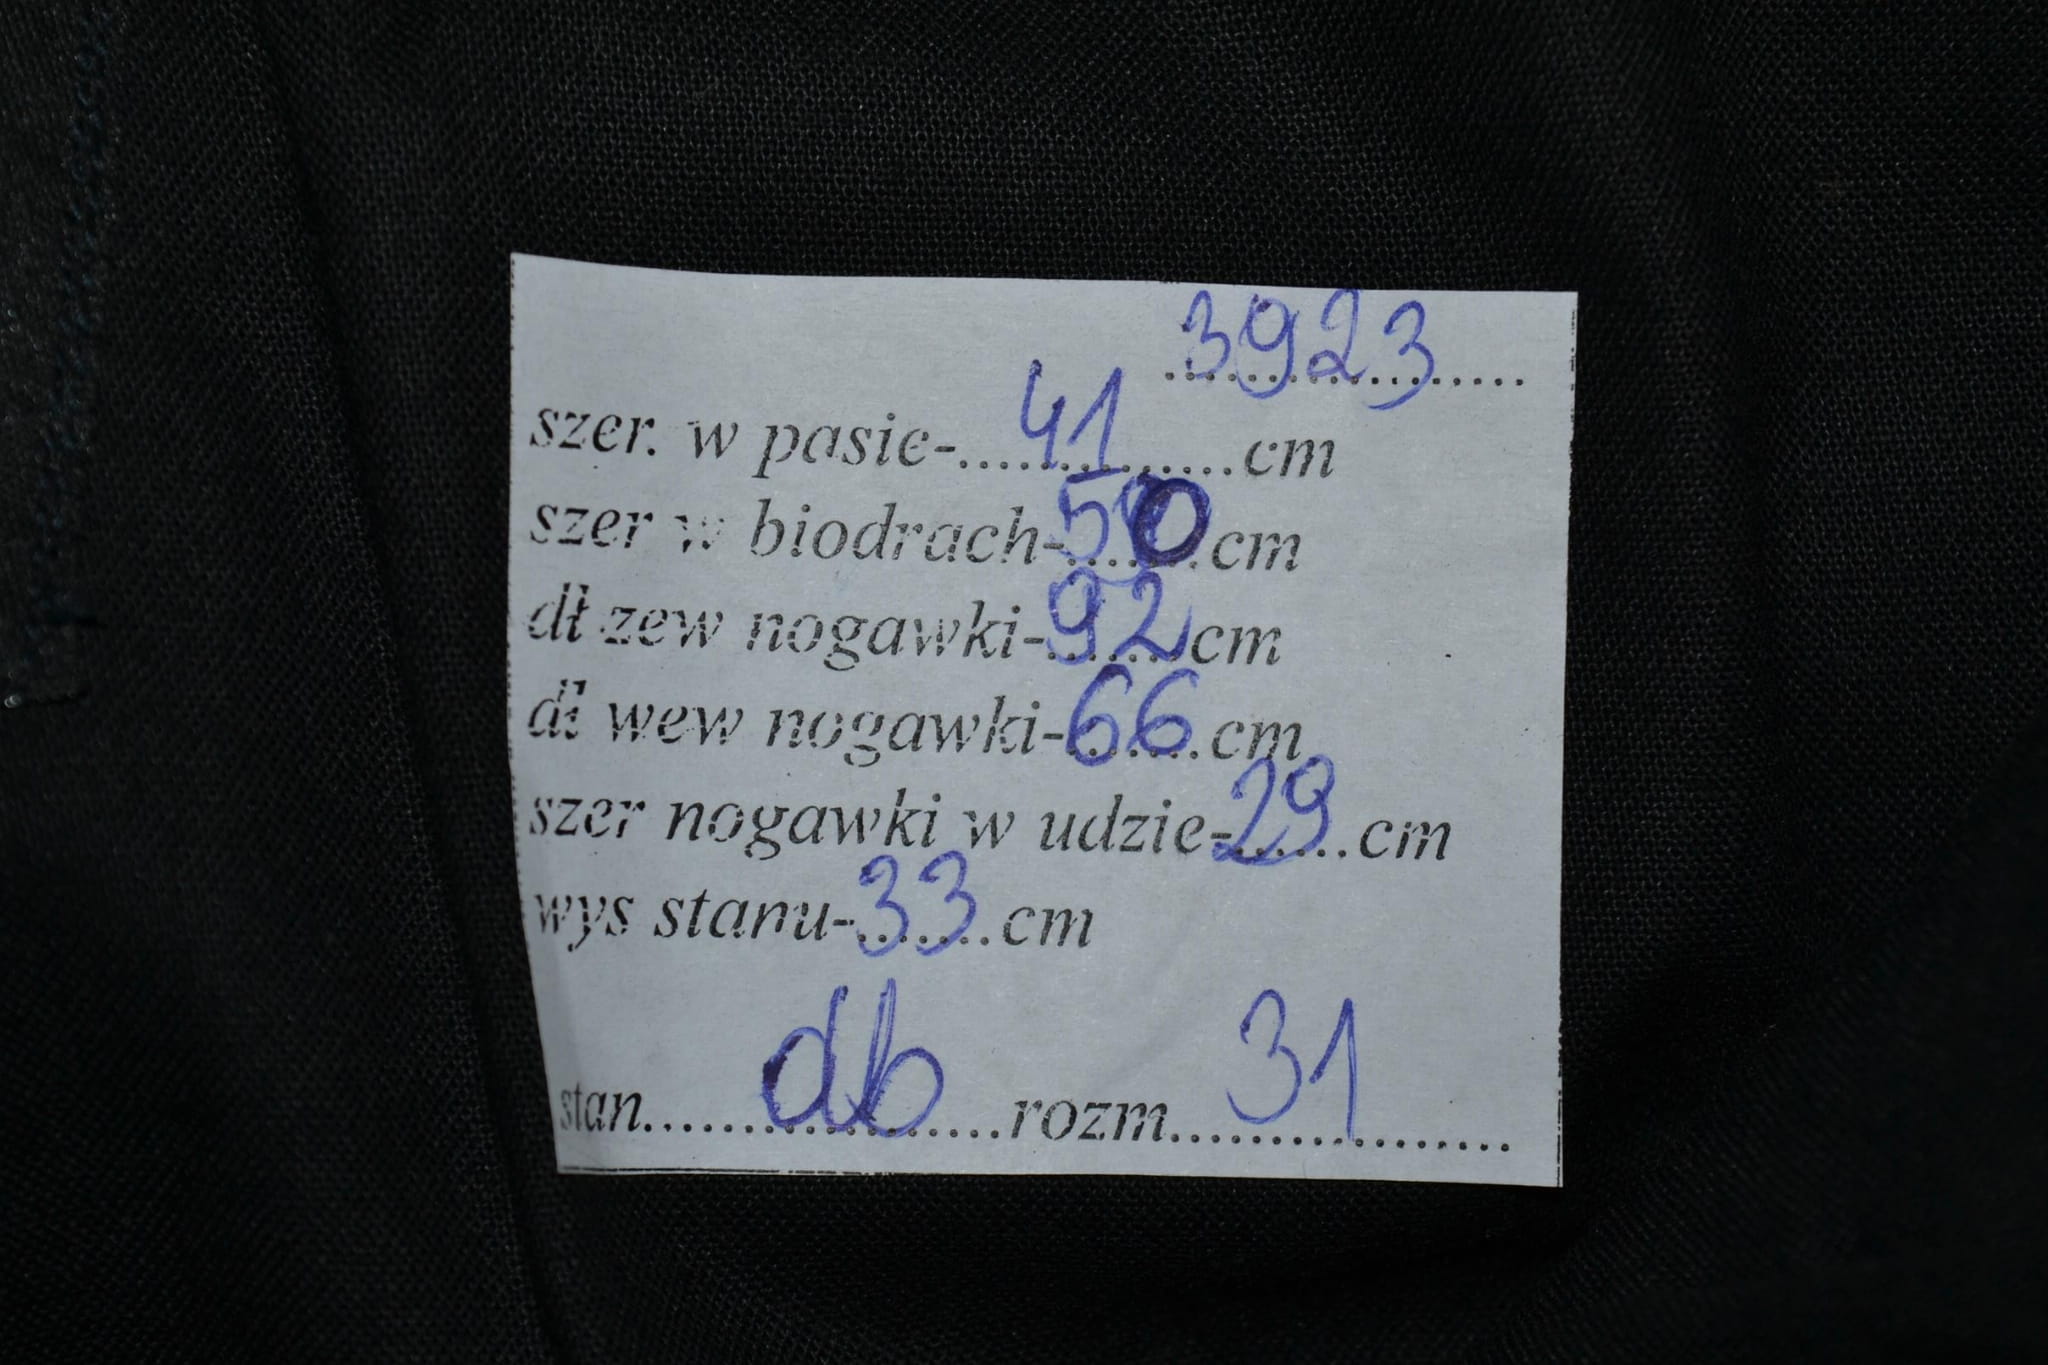 3923
szer. w pasie-41cm
szer w biodrach-50cm
dł zew nogawki-92cm
dł wew nogawki-66cm
szer nogawki w udzie-29cm
wys stanu-33cm
stan db rozm 31